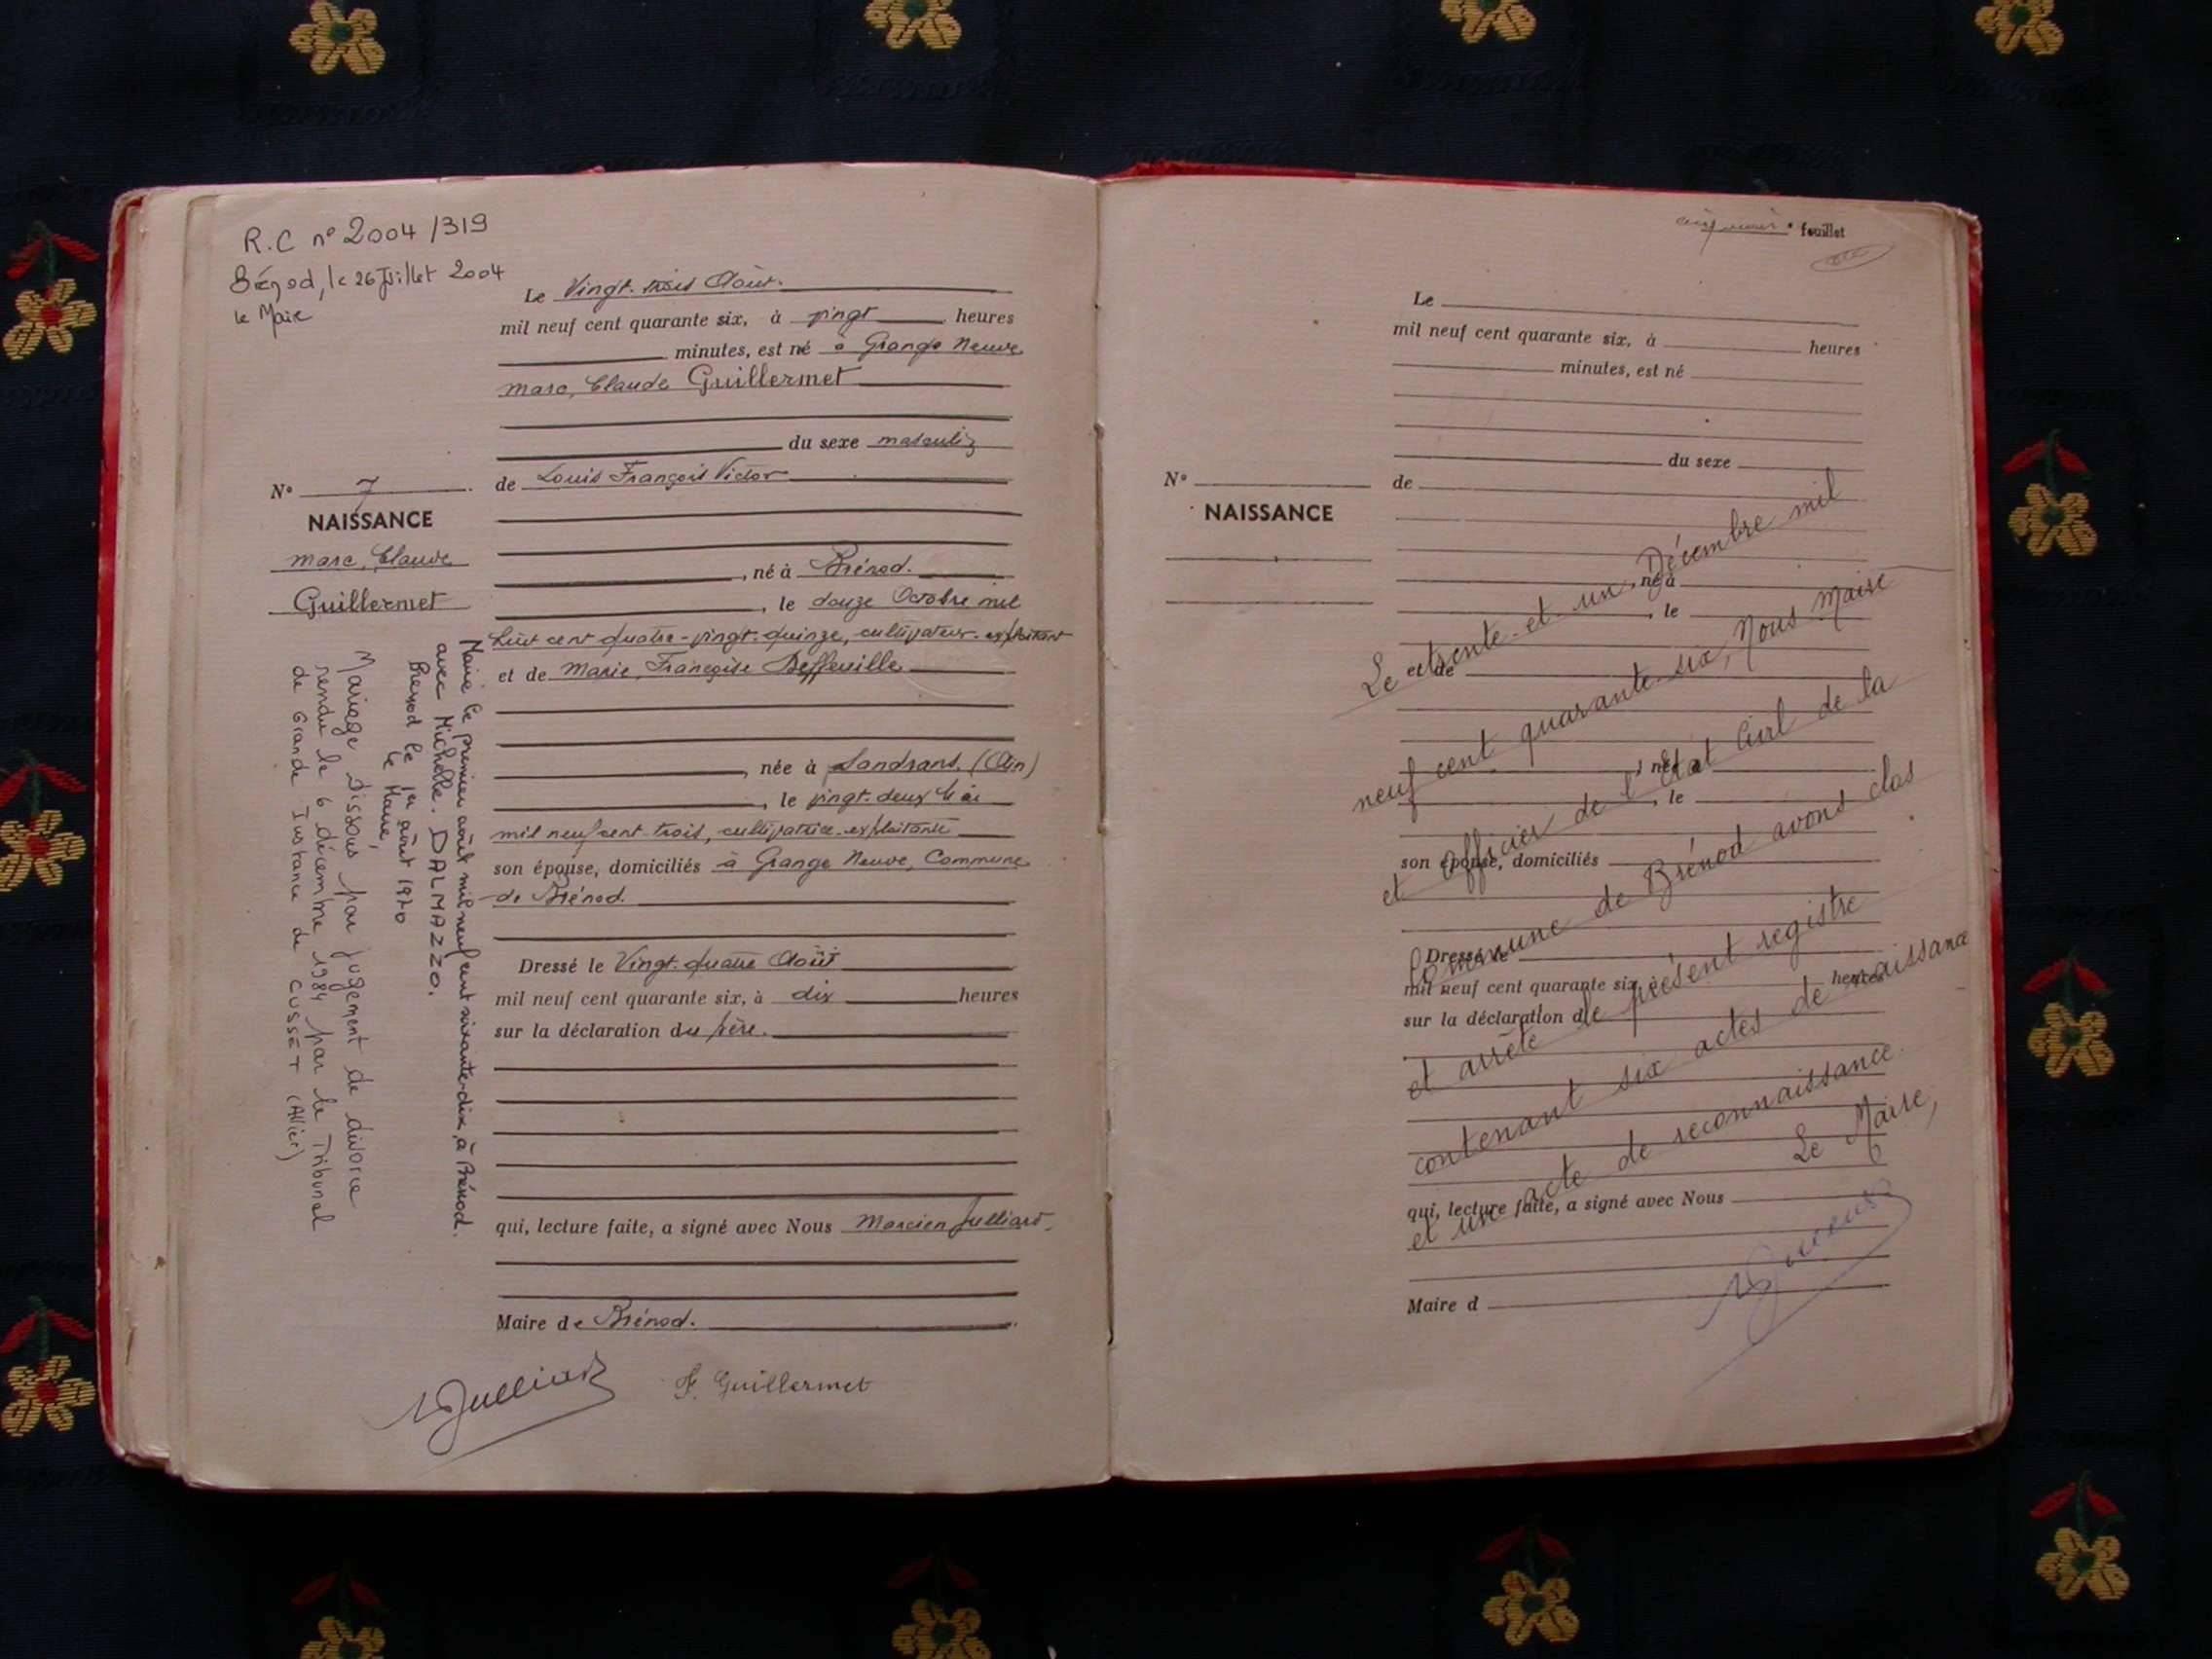 R.C n° 2004/319
Brénod, le 26 Juillet 2004
le Maire
Le Vingt-trois Août.
mil neuf cent quarante six, à vingt heures
minutes, est né à Grange Neuve
Marc, Claude Guillermet
du sexe masculin
de Louis François Victor
N° 7
NAISSANCE
Marc, Claude
Guillermet
, né à Brénod.
, le douze Octobre mil
huit cent quatre-vingt-quinze, cultivateur-exploitant
et de Marie, Françoise Deffeuille
, née à Sandrans. (Ain)
, le vingt-deux Mai
mil neuf cent trois, cultivatrice-exploitante
son épouse, domiciliés à Grange Neuve, Commune
de Brénod.
Dressé le Vingt-quatre Août
mil neuf cent quarante six, à dix heures
sur la déclaration du père.
qui, lecture faite, a signé avec Nous Marcien Julliard.
Maire de Brénod.
MJulliard
F. Guillermet
Marié le premier août mil neuf cent soixante-dix, à Brénod.
avec Michelle. DALMAZZO.
Brénod le 1er août 1970
Le Maire,
Mariage dissous par jugement de divorce
rendu le 6 décembre 1984 par le Tribunal
de Grande Instance de CUSSET (Allier)
feuillet
Le
mil neuf cent quarante six, à heures
minutes, est né
du sexe
N°
NAISSANCE
de
, né à
, le
et de
, née à
, le
son épouse, domiciliés
Dressé le
mil neuf cent quarante six, à heures
sur la déclaration d
qui, lecture faite, a signé avec Nous
Maire d
Le trente-et-un Décembre mil
neuf cent quarante-six, Nous Maire
et Officier de l'Etat Civil de la
Commune de Brénod avons clos
et arrêté le présent registre
contenant six actes de naissance
et un acte de reconnaissance.
Le Maire,